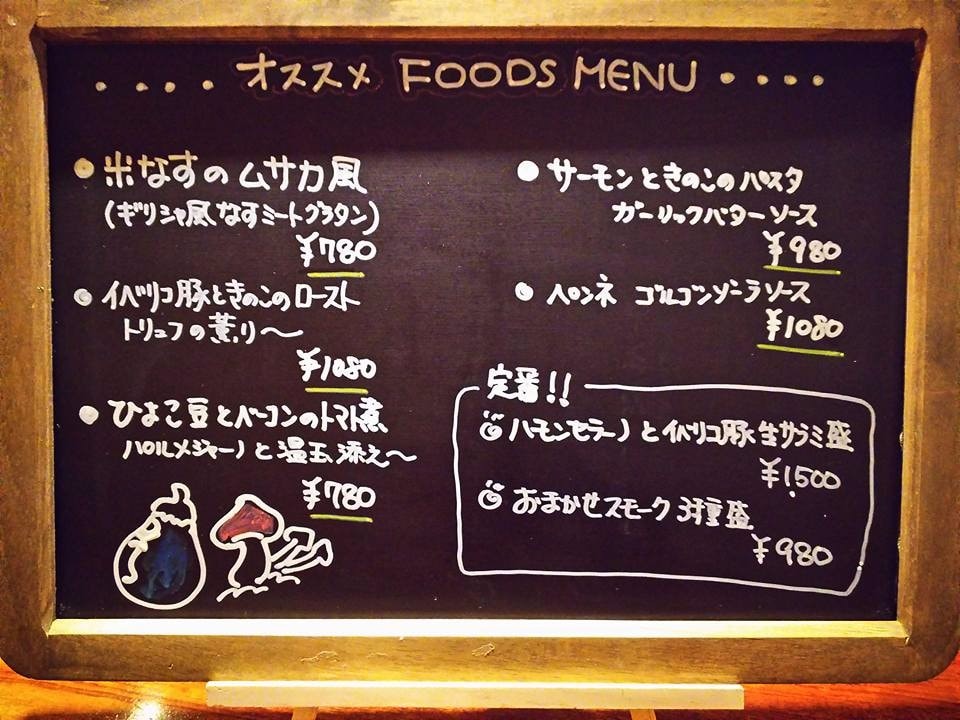 ・・・・オススメ FOODS MENU・・・・
● 米なすのムサカ風
(ギリシャ風なすミートグラタン)
¥780
● イベリコ豚ときのこのロースト
トリュフの薫り〜
¥1080
● ひよこ豆とベーコンのトマト煮
パルメジャーノと温玉添え〜
¥780
● サーモンときのこのパスタ
ガーリックバターソース
¥980
● ペンネ ゴルゴンゾーラソース
¥1080
定番!!
ハモンセラーノとイベリコ豚生サラミ盛
¥1,500
おまかせスモーク3種盛
¥980